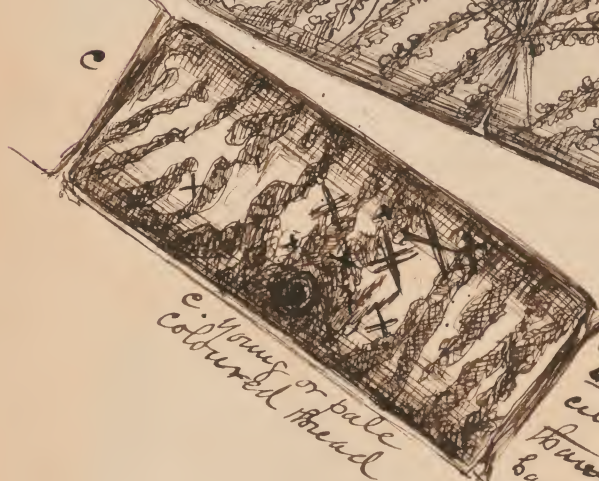 c
c. Young or pale
coloured thread